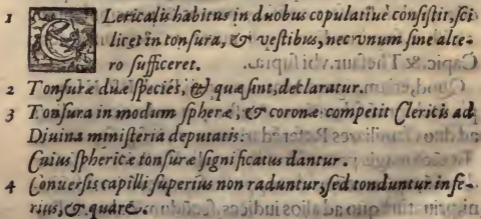 1 Clericalis habitus in duobus copulatiuè consistit, sci
licet in tonsura, & vestibus, nec vnum sine alte-
ro sufficeret.
2 Tonsuræ duæ species, & quæ sint, declaratur.
3 Tonsura in modum spheræ, & coronæ competit Clericis ad
Diuina ministeria deputatis.
Cuius sphericæ tonsuræ significatus dantur.
4 Conuersis capilli superius non raduntur, sed tonduntur infe-
rius, & quare.